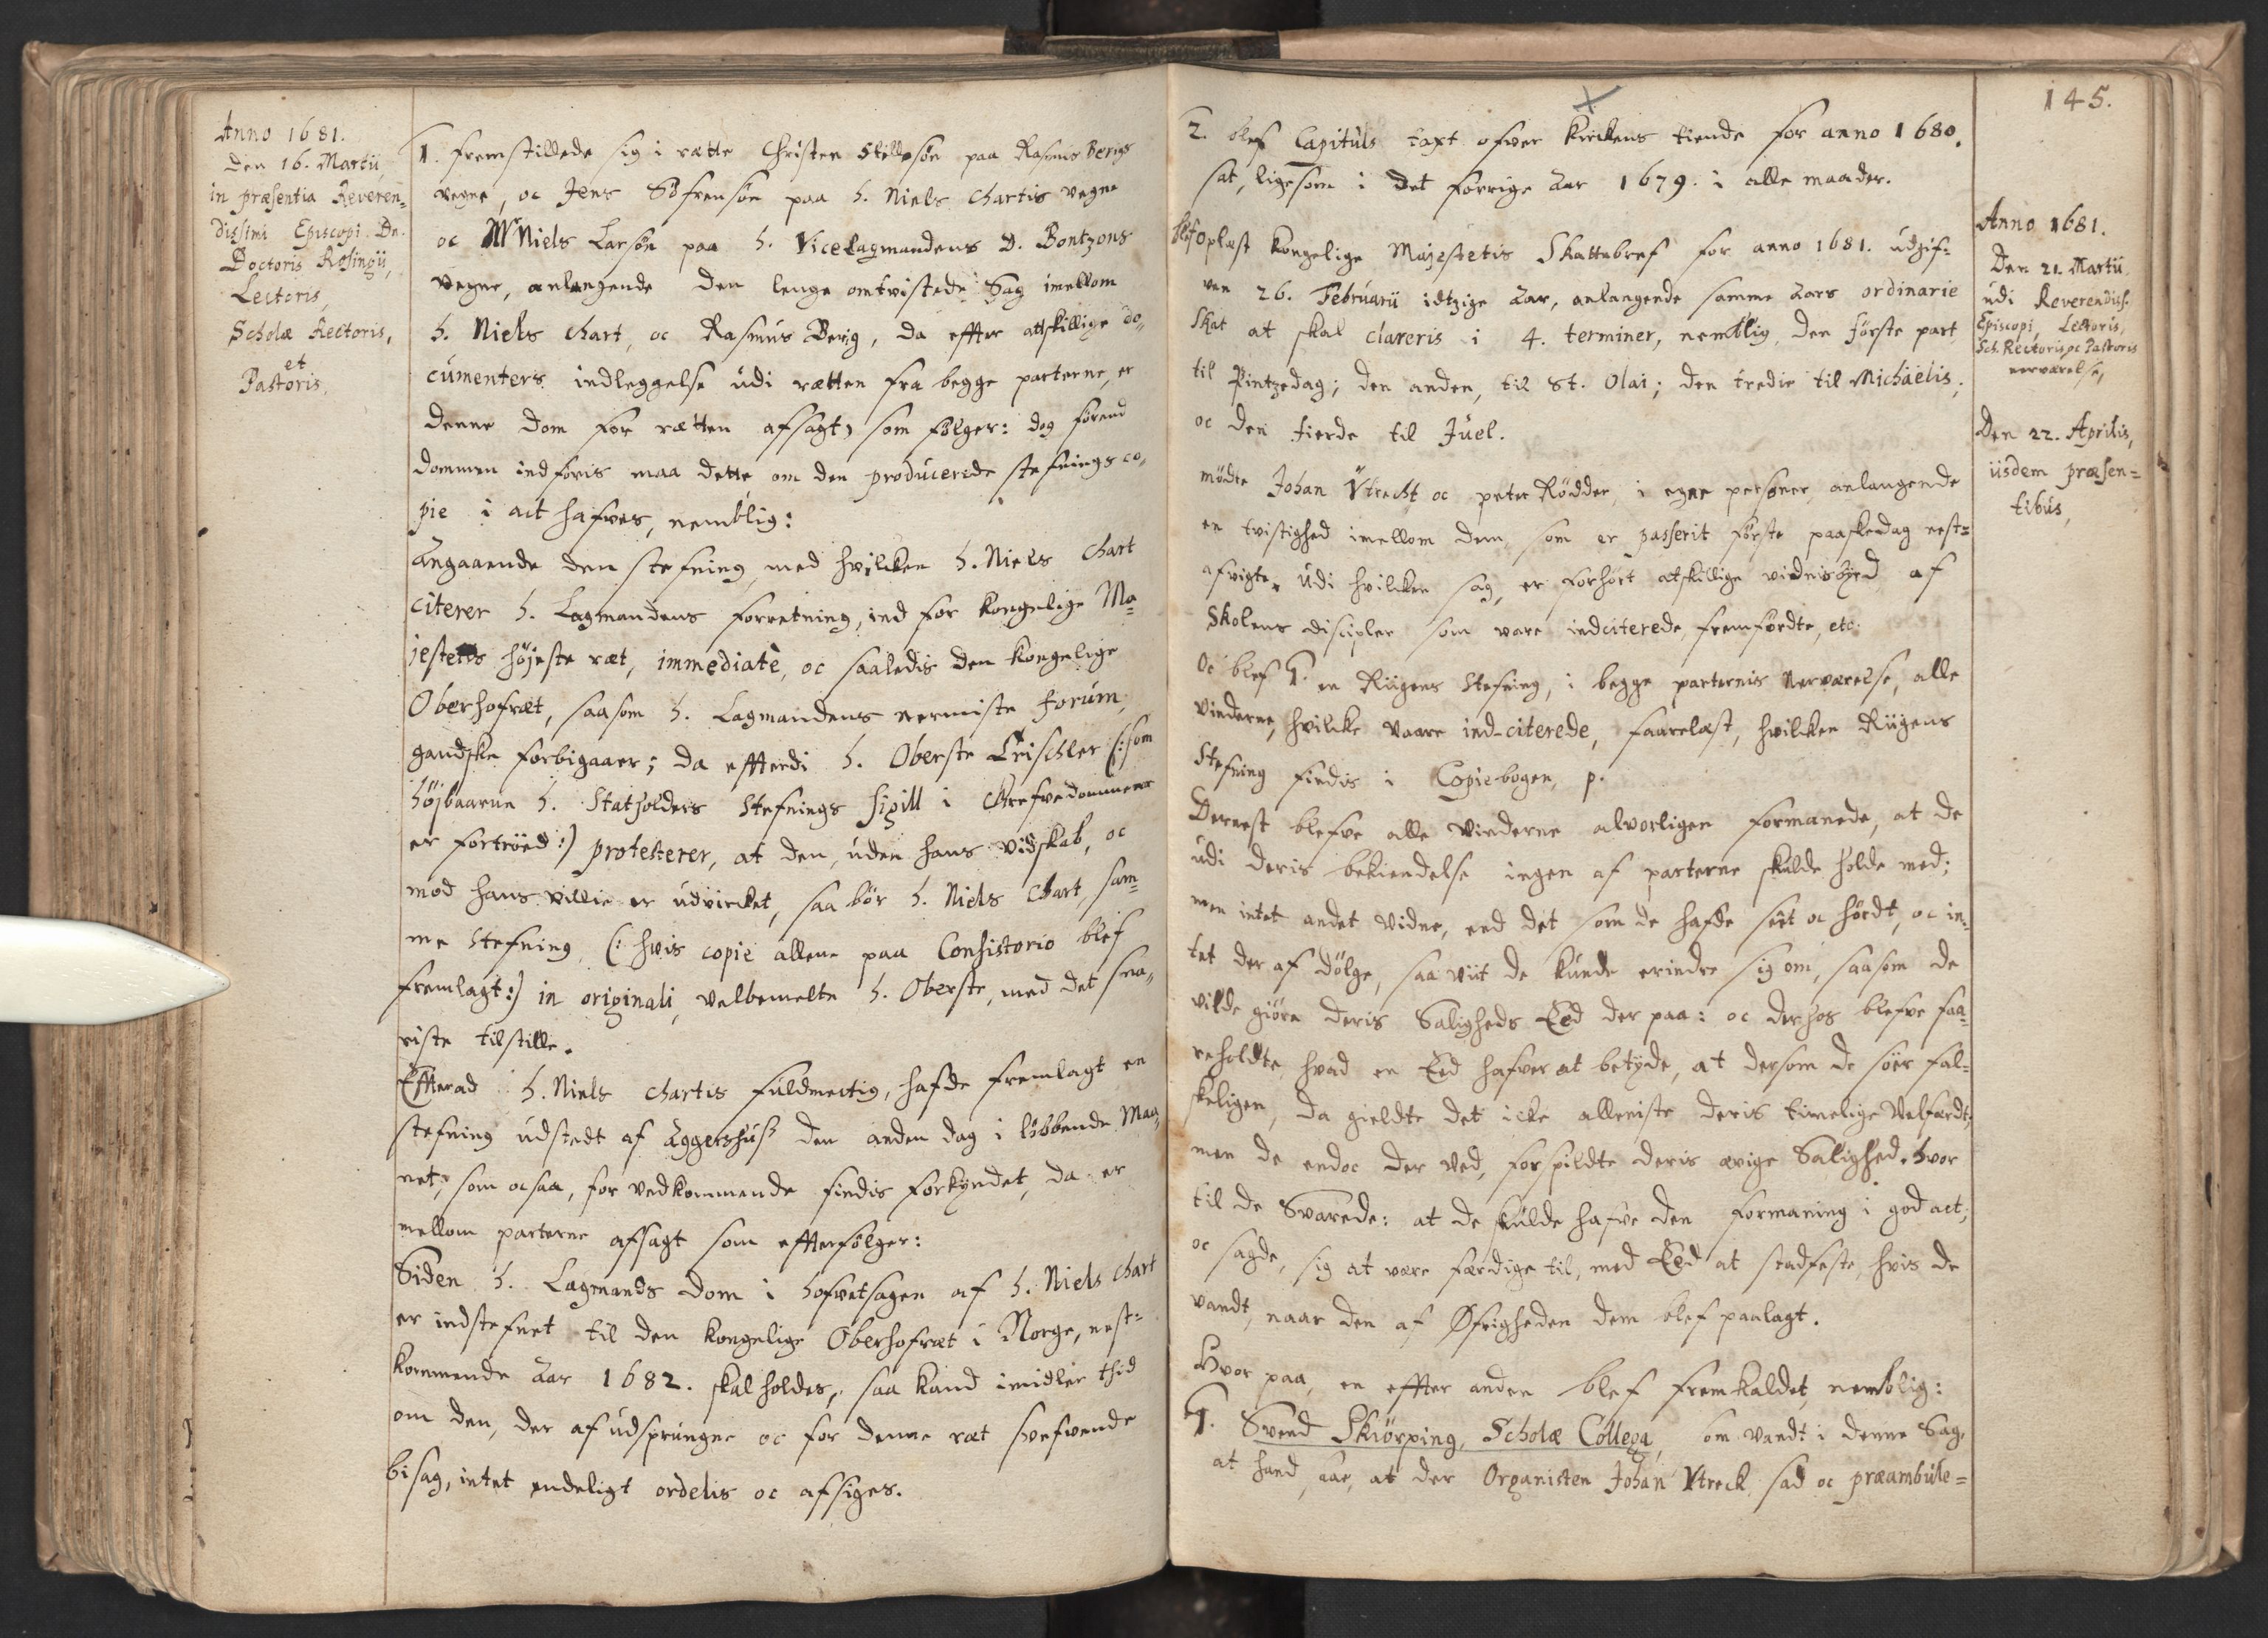 Anno 1681.
Den 16. Martii,
in præsentia Reveren=
dissimi Episcopi Dn.
Doctoris Rosingii,
Lectoris,
Scholæ Rectoris,
et
Pastoris,
1. fremstillede sig i rætte Christen Stellesøn paa Rasmus Berigs
vegne, oc Jens Søfrensøn paa H. Niels Chartis vegne
oc Mr Niels Larsøn paa H. Vicelagmandens D. Bontzons
vegne, anlangende den lenge omtvistede Sag imellom
H. Niels Chart, oc Rasmus Berig, da effter atskillige do„
cumenters indleggelse udi rætten fra begge parterne, er
denne dom for rætten afsagt, som følger: dog førend
dommen indføris maa dette om den producerede stefnings co„
pie i act hafves, nemblig:
Angaaende den stefning, med hvilcken H. Niels Chart
citerer H. Lagmandens forretning, ind for kongelige Ma=
jestets højeste ræt, immediatè, oc saaledis den kongelige
Oberhofræt, saasom H. Lagmandens nermiste forum,
gandske forbigaaer; da effterdi H. Oberste Crischler (: som
højbaarne H. Statholders Stefnings sigill i Grefvedommene
er fortröed :) protesterer, at den, uden hans vidskab, oc
mod hans villie er udvircket, saa bør H. Niels Chart, sam=
me Stefning (: hvis copie allene paa Consistorio blef
fremlagt :) in originali, velbemelte H. Oberste, med det sna„
riste tilstille.
Efterad H. Niels Chartis fuldmectig, hafde fremlagt en
stefning udstedt af Aggershuus den anden dag i løbbende Maa„
net, som ocsaa, for vedkommende findis forkyndet, da er
mellom parterne afsagt som effterfølger:
Siden H. Lagmands dom i hofvetsagen af H. Niels Chart
er indstefnet til den kongelige Oberhofræt i Norge, nest=
kommende Aar 1682. skal holdes, saa kand imidler thid
om den, der af udsprungne oc for denne ræt svefvende
bisag, intet endeligt ordelis oc afsiges.
145.
2. blef Capituls taxt ofver kirckens tiende for anno 1680.
sat, ligesom i det forrige Aar 1679. i alle maader.
Anno 1681.
Den 21. Martii
udi Reverendiss.
Episcopi, Lectoris,
Sch. Rectoris oc Pastoris
nerværelse,
blef oplæst kongelige Majestetis Skattebref for anno 1681. udgif=
ven 26. Februarii idtzige Aar, anlangende samme Aars ordinarie
Skat at skal clareris i 4. terminer, nemblig, den første part
til Pintzedag; den anden, til St. Olai; den tredie til Michaelis,
oc den fierde til Juel.
Den 22. Aprilis,
iisdem præsen=
tibus,
mødte Johan Vtrecht oc peter Rödder, i egne personer, anlangende
en tvistighed imellom dem, som er passerit første paaskedag nest=
afvigte, udi hvilcken sag, er forhört atskillige vidnisbyrd af
Skolens discipler som vare indciterede, fremførdte, etc.
Oc blef 1. en Riigens Stefning, i begge parternis Nerværelse, alle
vinderne, hvilcke vaare ind-citerede, faarelæst, hvilcken Riigens
Stefning findis i Copiebogen, p.
Dernest blefve alle vinderne alvorligen formanede, at de
udi deris bekiendelse ingen af parterne skulde holde med;
men intet andet vidne, end det som de hafde seet oc hördt, oc in„
tet der af dölge, saa viit de kunde erindre sig om, saasom de
vilde giöre deris Saligheds Eed der paa: oc der hos blefve faa=
reholdte hvad en Eed hafver at betyde, at dersom de soer fal=
skeligen, da gieldte det icke alleniste deris timelige Velfærdt,
men de endoc der ved, forspildte deris ævige Salighed. Hvor
til de Svarede: at de skulde hafve den formaning i god act,
oc sagde, sig at være færdige til, med Eed at stadfeste, hvis de
vandt, naar den af Øfrigheden dem blef paalagt.
Hvor paa, en effter anden blef fremkaldet, nemblig:
1. Svend Skiörping, Scholæ Collega, om vandt i denne Sag,
at hand, saae, at der Organisten Johan Vtreck sad oc præambule=